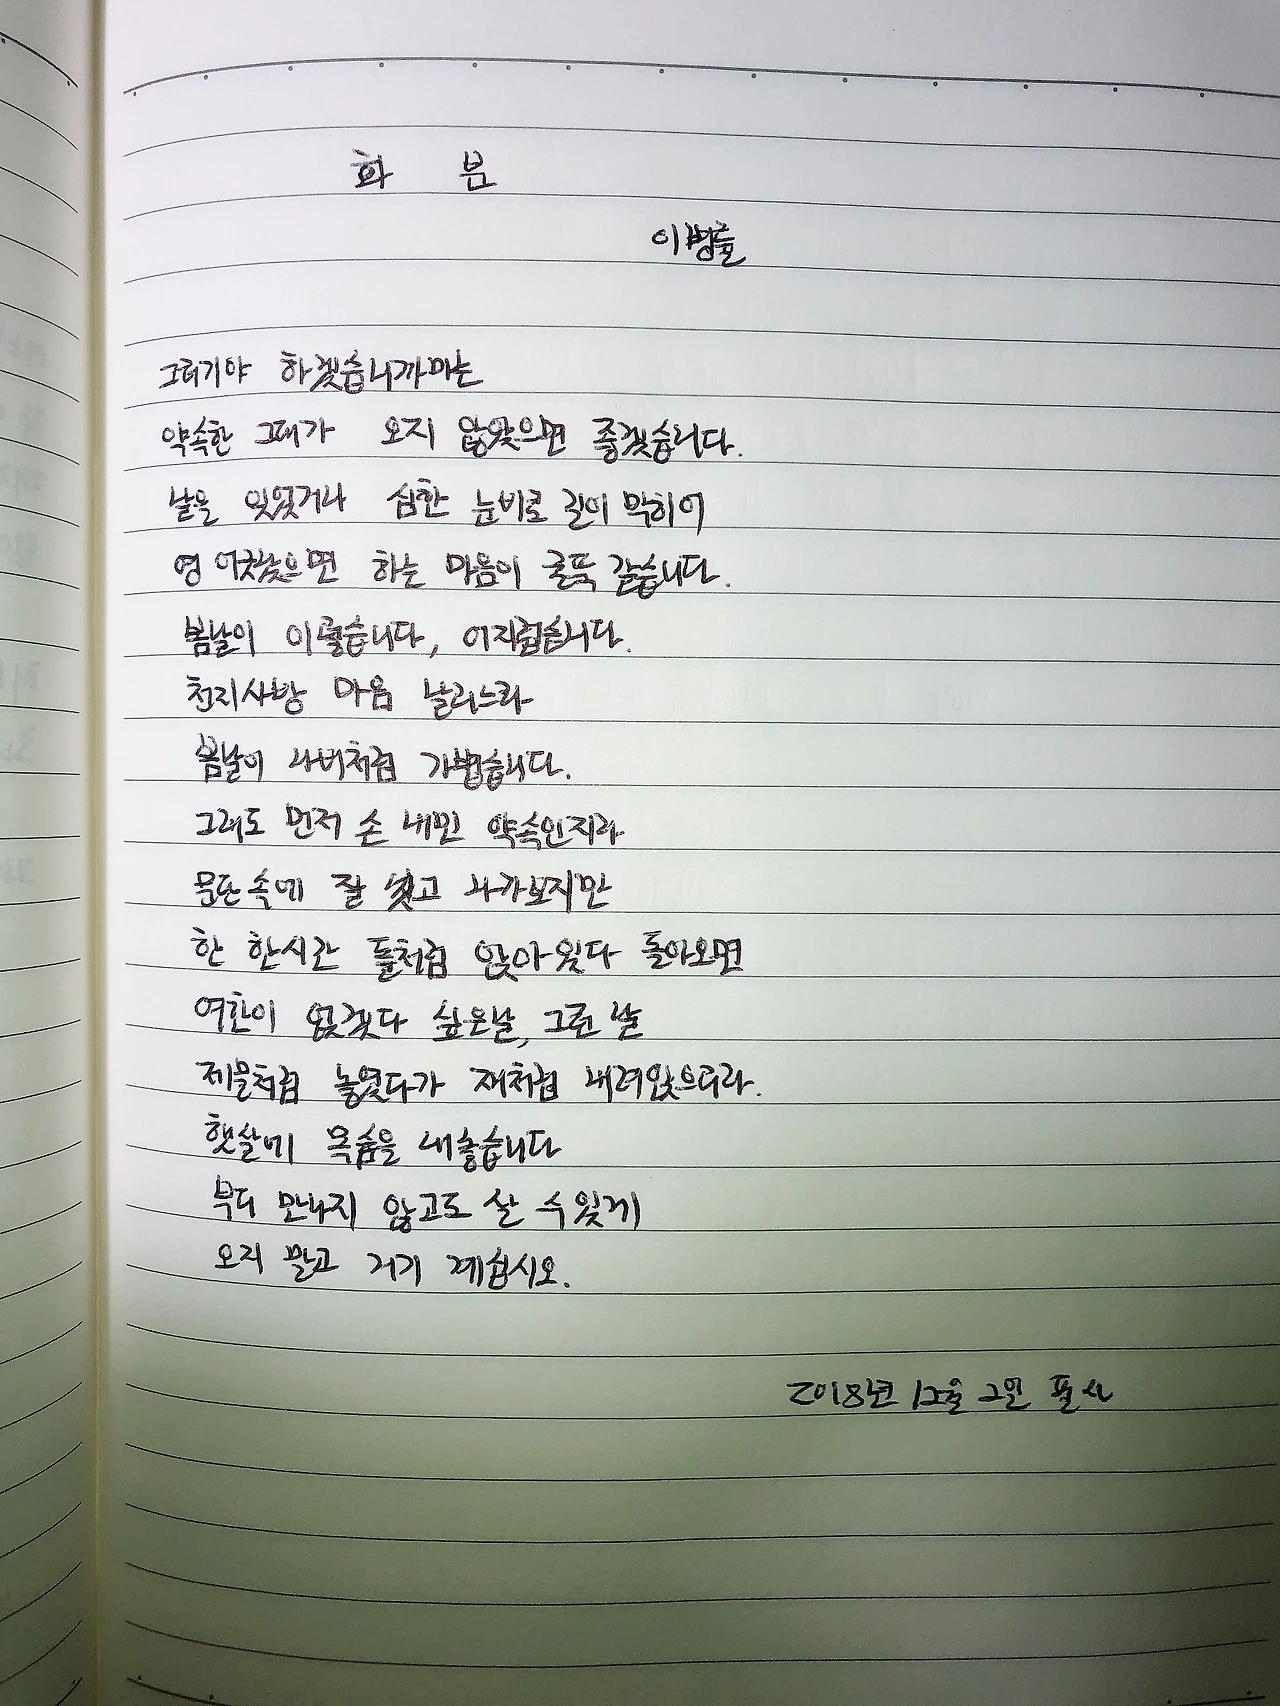 화 분
이병률
그러기야 하겠습니까마는
약속한 그대가 오지 않았으면 좋겠습니다.
날을 잊었거나 심한 눈비로 길이 막히어
영 어긋났으면 하는 마음이 굴뚝 같습니다.
봄날이 이렇습니다, 어지럽습니다.
천지사방 마음 날리느라
봄날이 나비처럼 가볍습니다.
그래도 먼저 손 내민 약속인지라
문단속에 잘 씻고 나가보지만
한 한시간 돌처럼 앉아 있다 돌아오면
여한이 없겠다 싶은날, 그런 날
제물처럼 놓였다가 재처럼 내려앉으리라.
햇살에 목숨을 내놓습니다
부디 만나지 않고도 살 수 있게
오지 말고 거기 계십시오.
2018년 12월 2일 필사